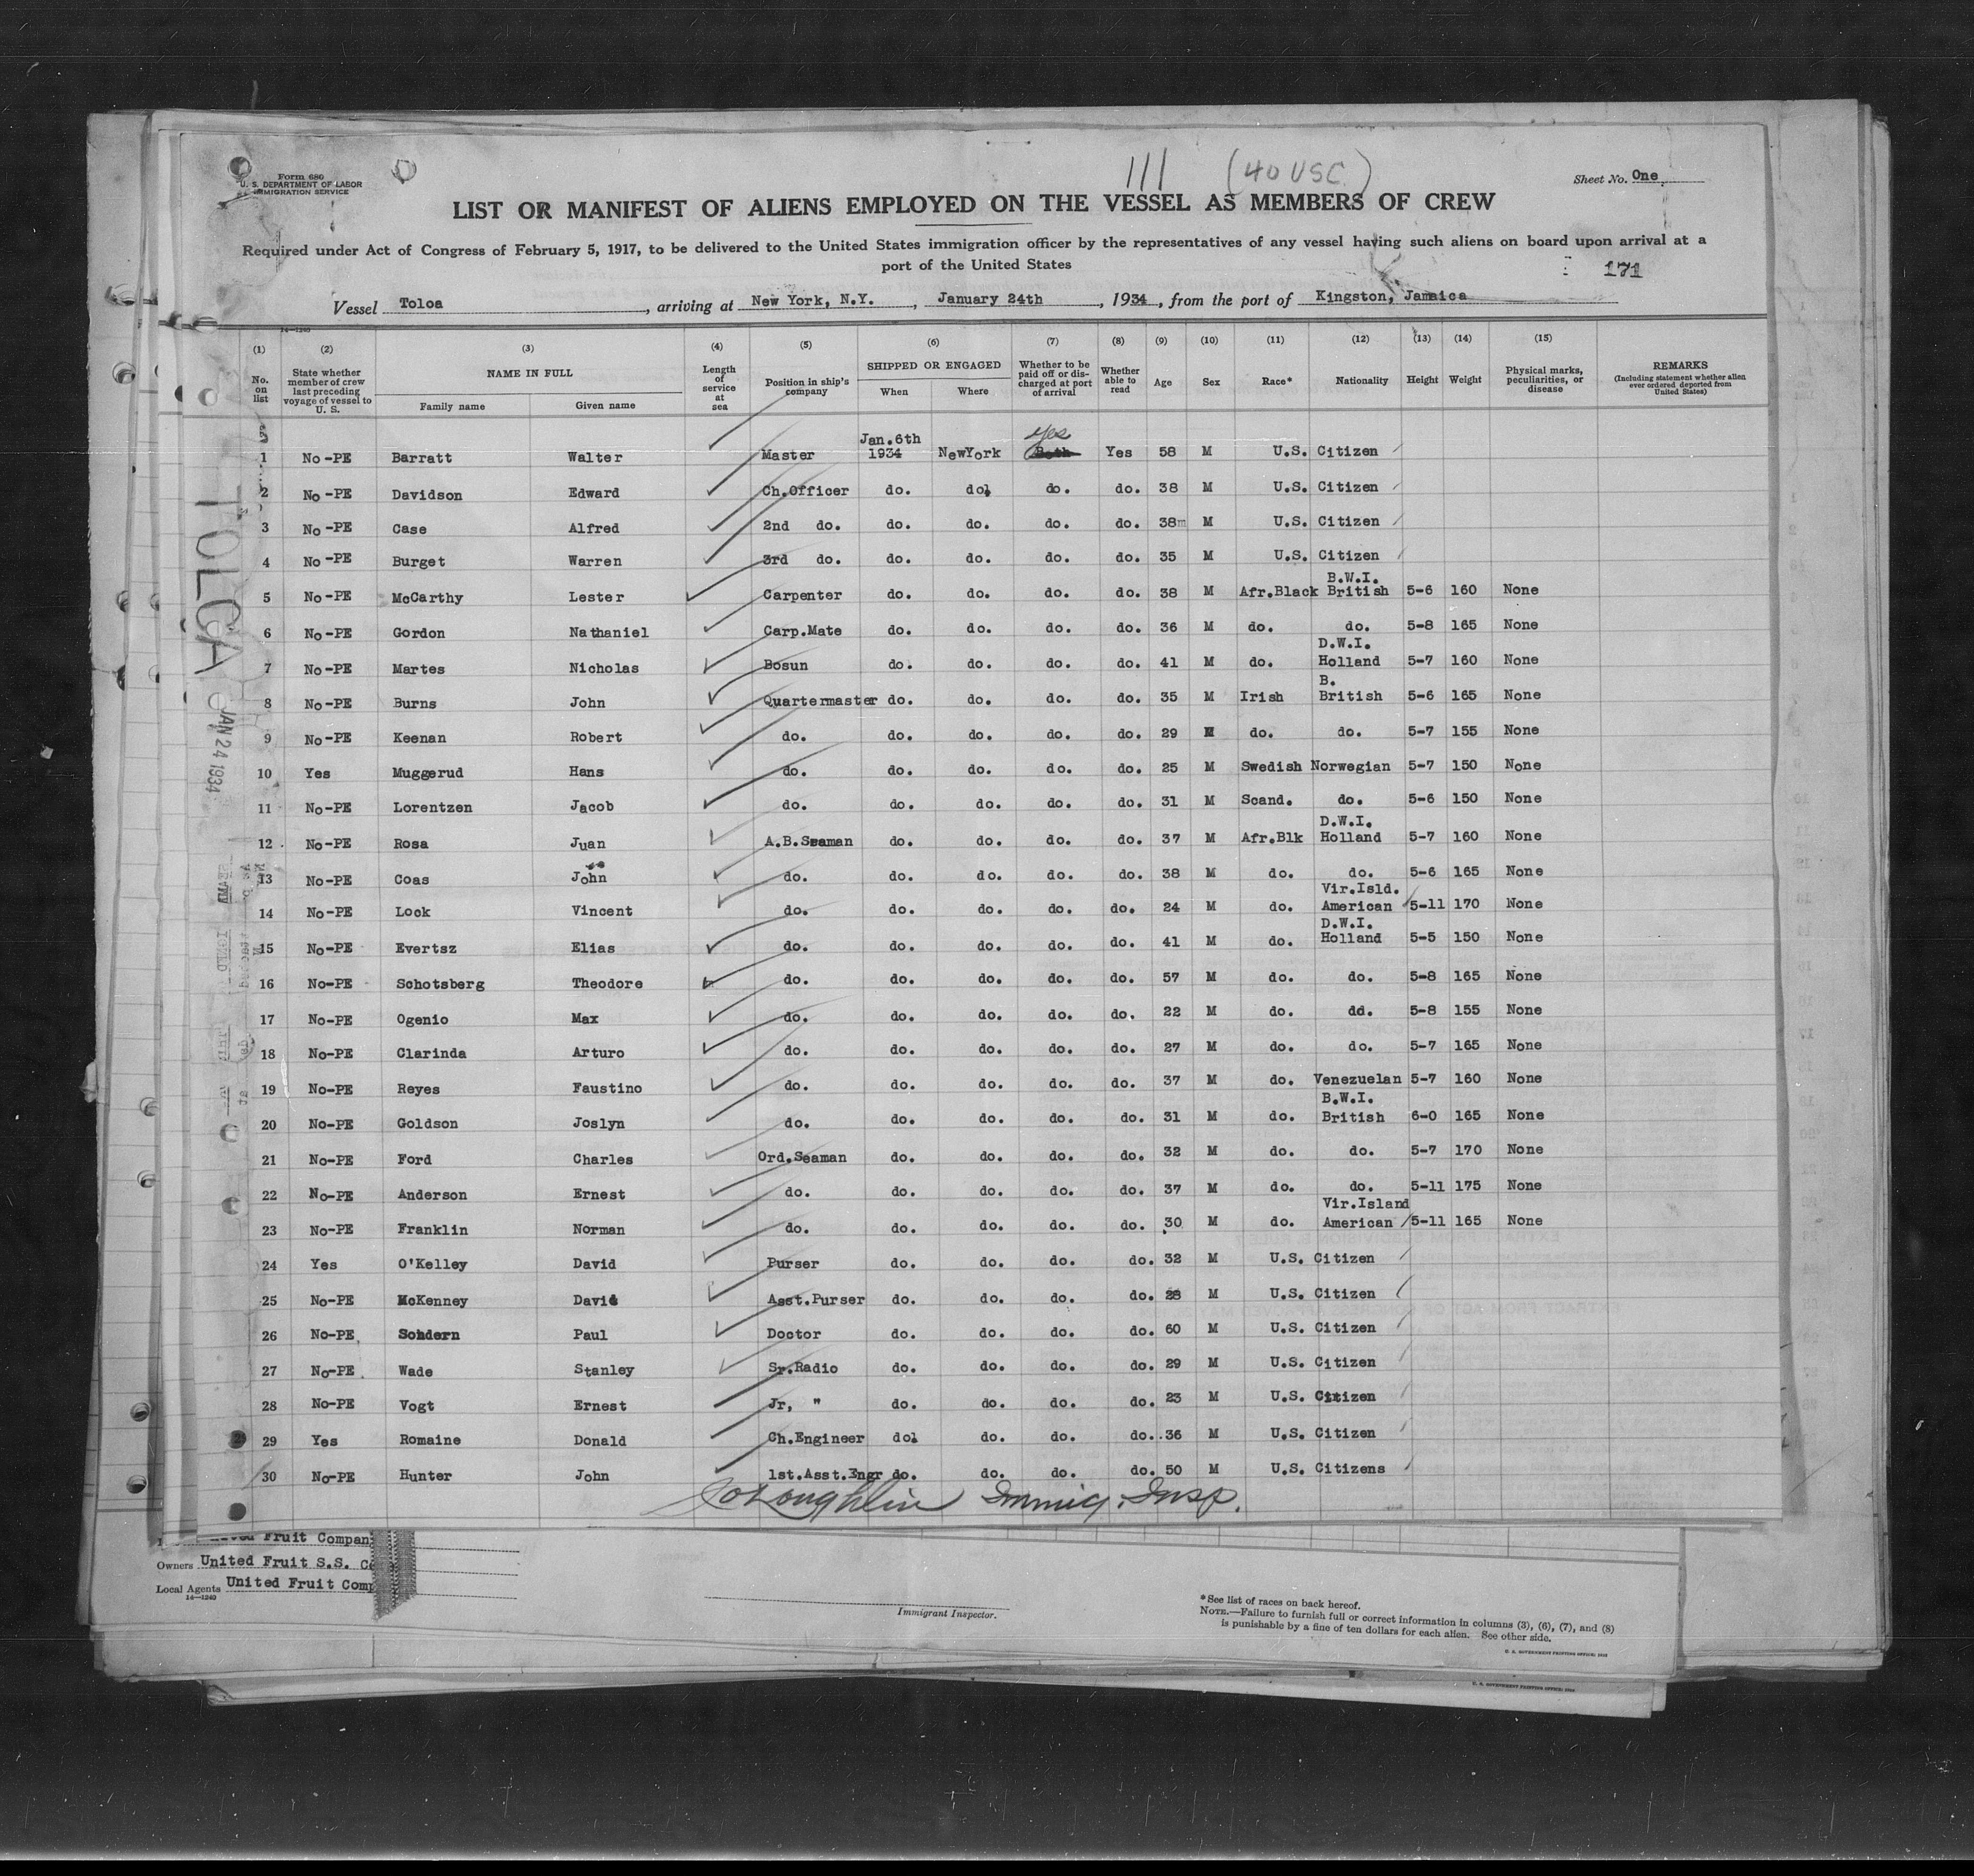 Form 680
U. S. DEPARTMENT OF LABOR
IMMIGRATION SERVICE
111 (40 USC)
Sheet No. One
LIST OR MANIFEST OF ALIENS EMPLOYED ON THE VESSEL AS MEMBERS OF CREW
Required under Act of Congress of February 5, 1917, to be delivered to the United States immigration officer by the representatives of any vessel having such aliens on board upon arrival at a
port of the United States
171
Vessel Toloa, arriving at New York, N.Y., January 24th, 1934, from the port of Kingston, Jamaica
14—1240
(1) (2) (3) (4) (5) (6) (7) (8) (9) (10) (11) (12) (13) (14) (15)
No. on list
State whether member of crew last preceding voyage of vessel to U. S.
NAME IN FULL
Family name Given name
Length of service at sea
Position in ship's company
SHIPPED OR ENGAGED
When Where
Whether to be paid off or discharged at port of arrival
Whether able to read
Age Sex Race* Nationality Height Weight
Physical marks, peculiarities, or disease
REMARKS
(Including statement whether alien ever ordered deported from United States)
1 No-PE Barratt Walter Master Jan.6th 1934 NewYork yes Yes 58 M U.S. Citizen
2 No-PE Davidson Edward Ch.Officer do. do. do. do. 38 M U.S. Citizen
3 No-PE Case Alfred 2nd do. do. do. do. do. 38m M U.S. Citizen
4 No-PE Burget Warren 3rd do. do. do. do. do. 35 M U.S. Citizen
5 No-PE McCarthy Lester Carpenter do. do. do. do. 38 M Afr.Black B.W.I. British 5-6 160 None
6 No-PE Gordon Nathaniel Carp.Mate do. do. do. do. 36 M do. do. 5-8 165 None
7 No-PE Martes Nicholas Bosun do. do. do. do. 41 M do. D.W.I. Holland 5-7 160 None
8 No-PE Burns John Quartermaster do. do. do. do. 35 M Irish B. British 5-6 165 None
9 No-PE Keenan Robert do. do. do. do. do. 29 M do. do. 5-7 155 None
10 Yes Muggerud Hans do. do. do. do. do. 25 M Swedish Norwegian 5-7 150 None
11 No-PE Lorentzen Jacob do. do. do. do. do. 31 M Scand. do. 5-6 150 None
12 No-PE Rosa Juan A.B.Seaman do. do. do. do. 37 M Afr.Blk D.W.I. Holland 5-7 160 None
13 No-PE Coas John do. do. do. do. do. 38 M do. do. 5-6 165 None
14 No-PE Lock Vincent do. do. do. do. do. 24 M do. Vir.Isld. American 5-11 170 None
15 No-PE Evertsz Elias do. do. do. do. do. 41 M do. D.W.I. Holland 5-5 150 None
16 No-PE Schotsberg Theodore do. do. do. do. do. 57 M do. do. 5-8 165 None
17 No-PE Ogenio Max do. do. do. do. do. 22 M do. dd. 5-8 155 None
18 No-PE Clarinda Arturo do. do. do. do. do. 27 M do. do. 5-7 165 None
19 No-PE Reyes Faustino do. do. do. do. do. 37 M do. Venezuelan 5-7 160 None
20 No-PE Goldson Joslyn do. do. do. do. do. 31 M do. B.W.I. British 6-0 165 None
21 No-PE Ford Charles Ord.Seaman do. do. do. do. 32 M do. do. 5-7 170 None
22 No-PE Anderson Ernest do. do. do. do. do. 37 M do. do. 5-11 175 None
23 No-PE Franklin Norman do. do. do. do. do. 30 M do. Vir.Island American 5-11 165 None
24 Yes O'Kelley David Purser do. do. do. do. 32 M U.S. Citizen
25 No-PE McKenney David Asst.Purser do. do. do. do. 28 M U.S. Citizen
26 No-PE Paul Doctor do. do. do. do. 60 M U.S. Citizen
27 No-PE Wade Stanley Sr.Radio do. do. do. do. 29 M U.S. Citizen
28 No-PE Vogt Ernest Jr, " do. do. do. do. 23 M U.S. Citizen
29 Yes Romaine Donald Ch.Engineer dol do. do. do. 36 M U.S. Citizen
30 No-PE Hunter John 1st.Asst.Engr do. do. do. do. 50 M U.S. Citizens
TOLOA
JAN 24 1934
Loughlin Immig. Insp.
Fruit Compan
Owners United Fruit S.S. Co
Local Agents United Fruit Comp
14—1240
Immigrant Inspector.
*See list of races on back hereof.
NOTE.—Failure to furnish full or correct information in columns (3), (6), (7), and (8)
is punishable by a fine of ten dollars for each alien. See other side.
U. S. GOVERNMENT PRINTING OFFICE:
U. S. GOVERNMENT PRINTING OFFICE: